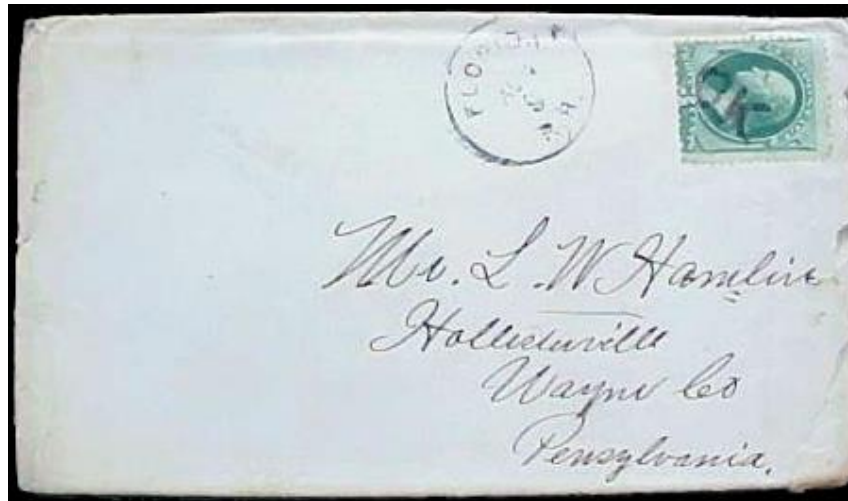 FLORIDA
Mr. L. W Hamlin
Hollisterville
Wayne Co
Pensylvania.